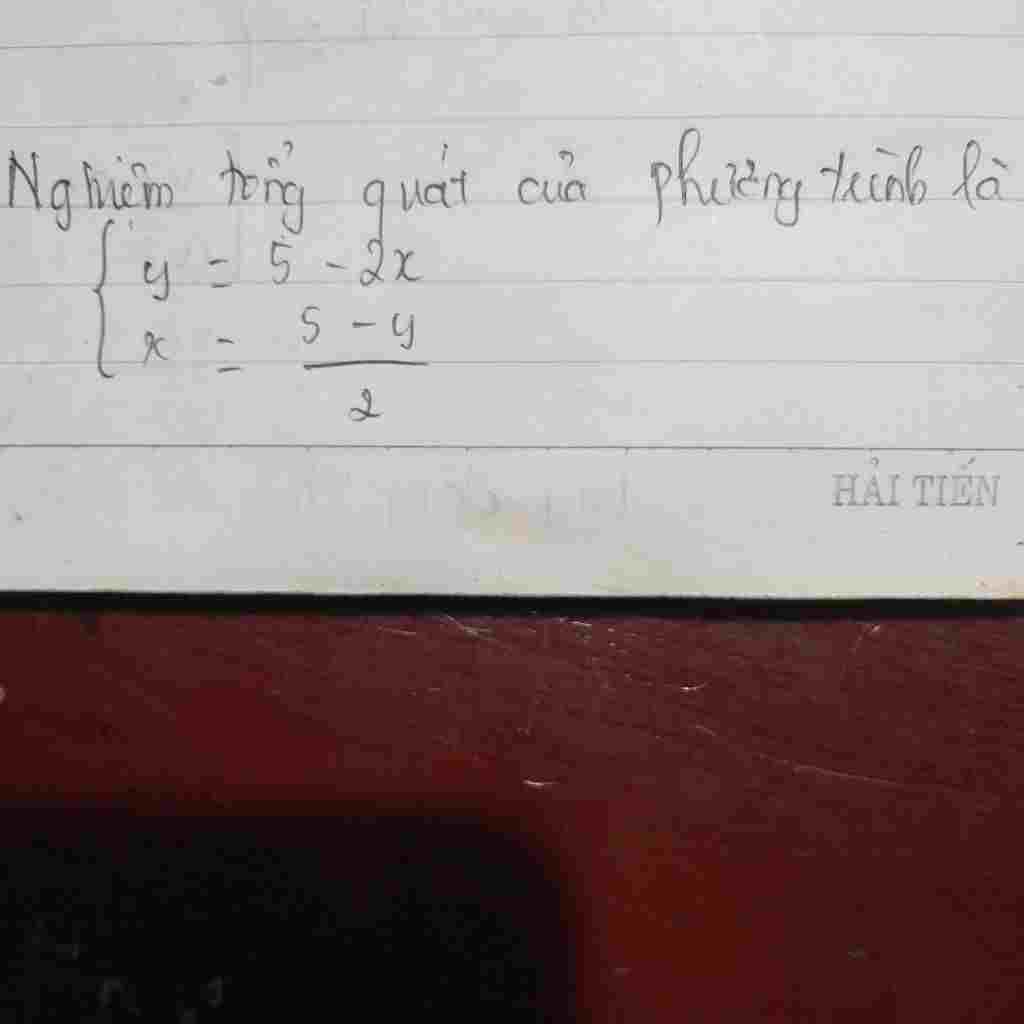 Nghiệm tổng quát của phương trình là
{ y = 5 - 2x
x = \frac{5 - y}{2}
HẢI TIẾN